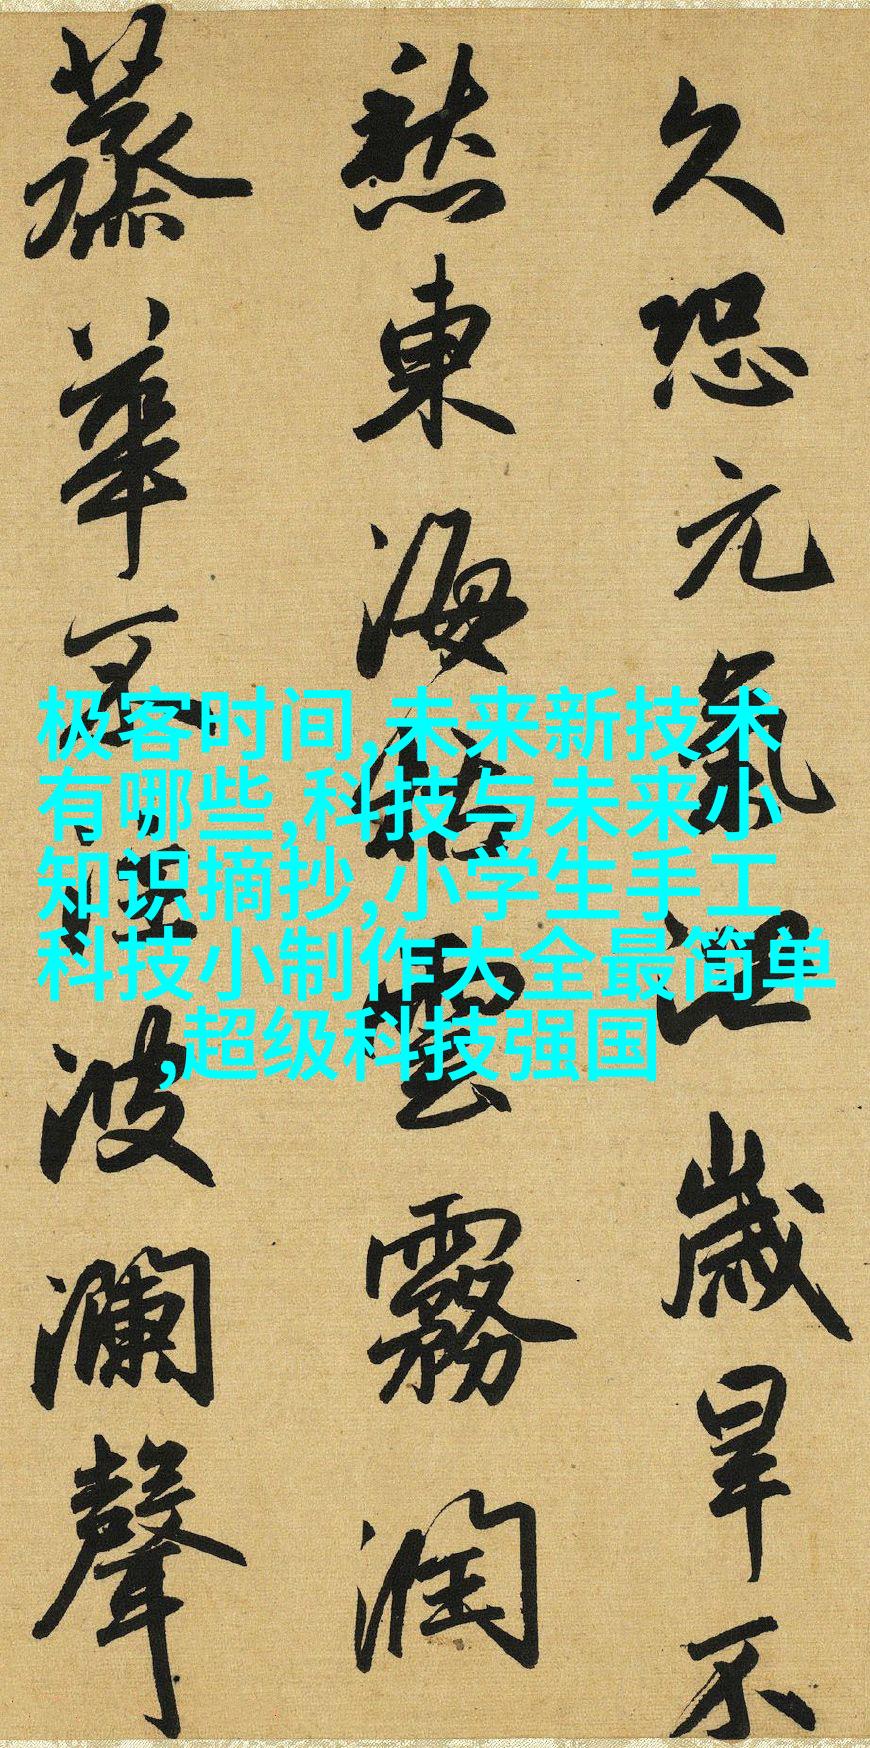 久恐元氣泄歲旱不
愁東海枯雲霧潤
蒸華不注波瀾聲
极客时间,未来新技术
有哪些,科技与未来小
知识摘抄,小学生手工
科技小制作大全最简单
,超级科技强国